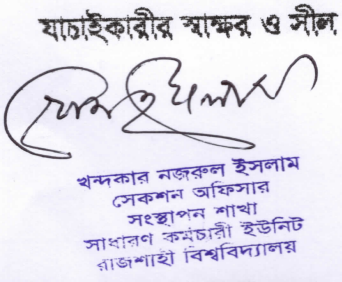 যাচাইকারীর স্বাক্ষর ও সীল
খন্দকার নজরুল ইসলাম
সেকশন অফিসার
সংস্থাপন শাখা
সাধারণ কর্মচারী ইউনিট
রাজশাহী বিশ্ববিদ্যালয়